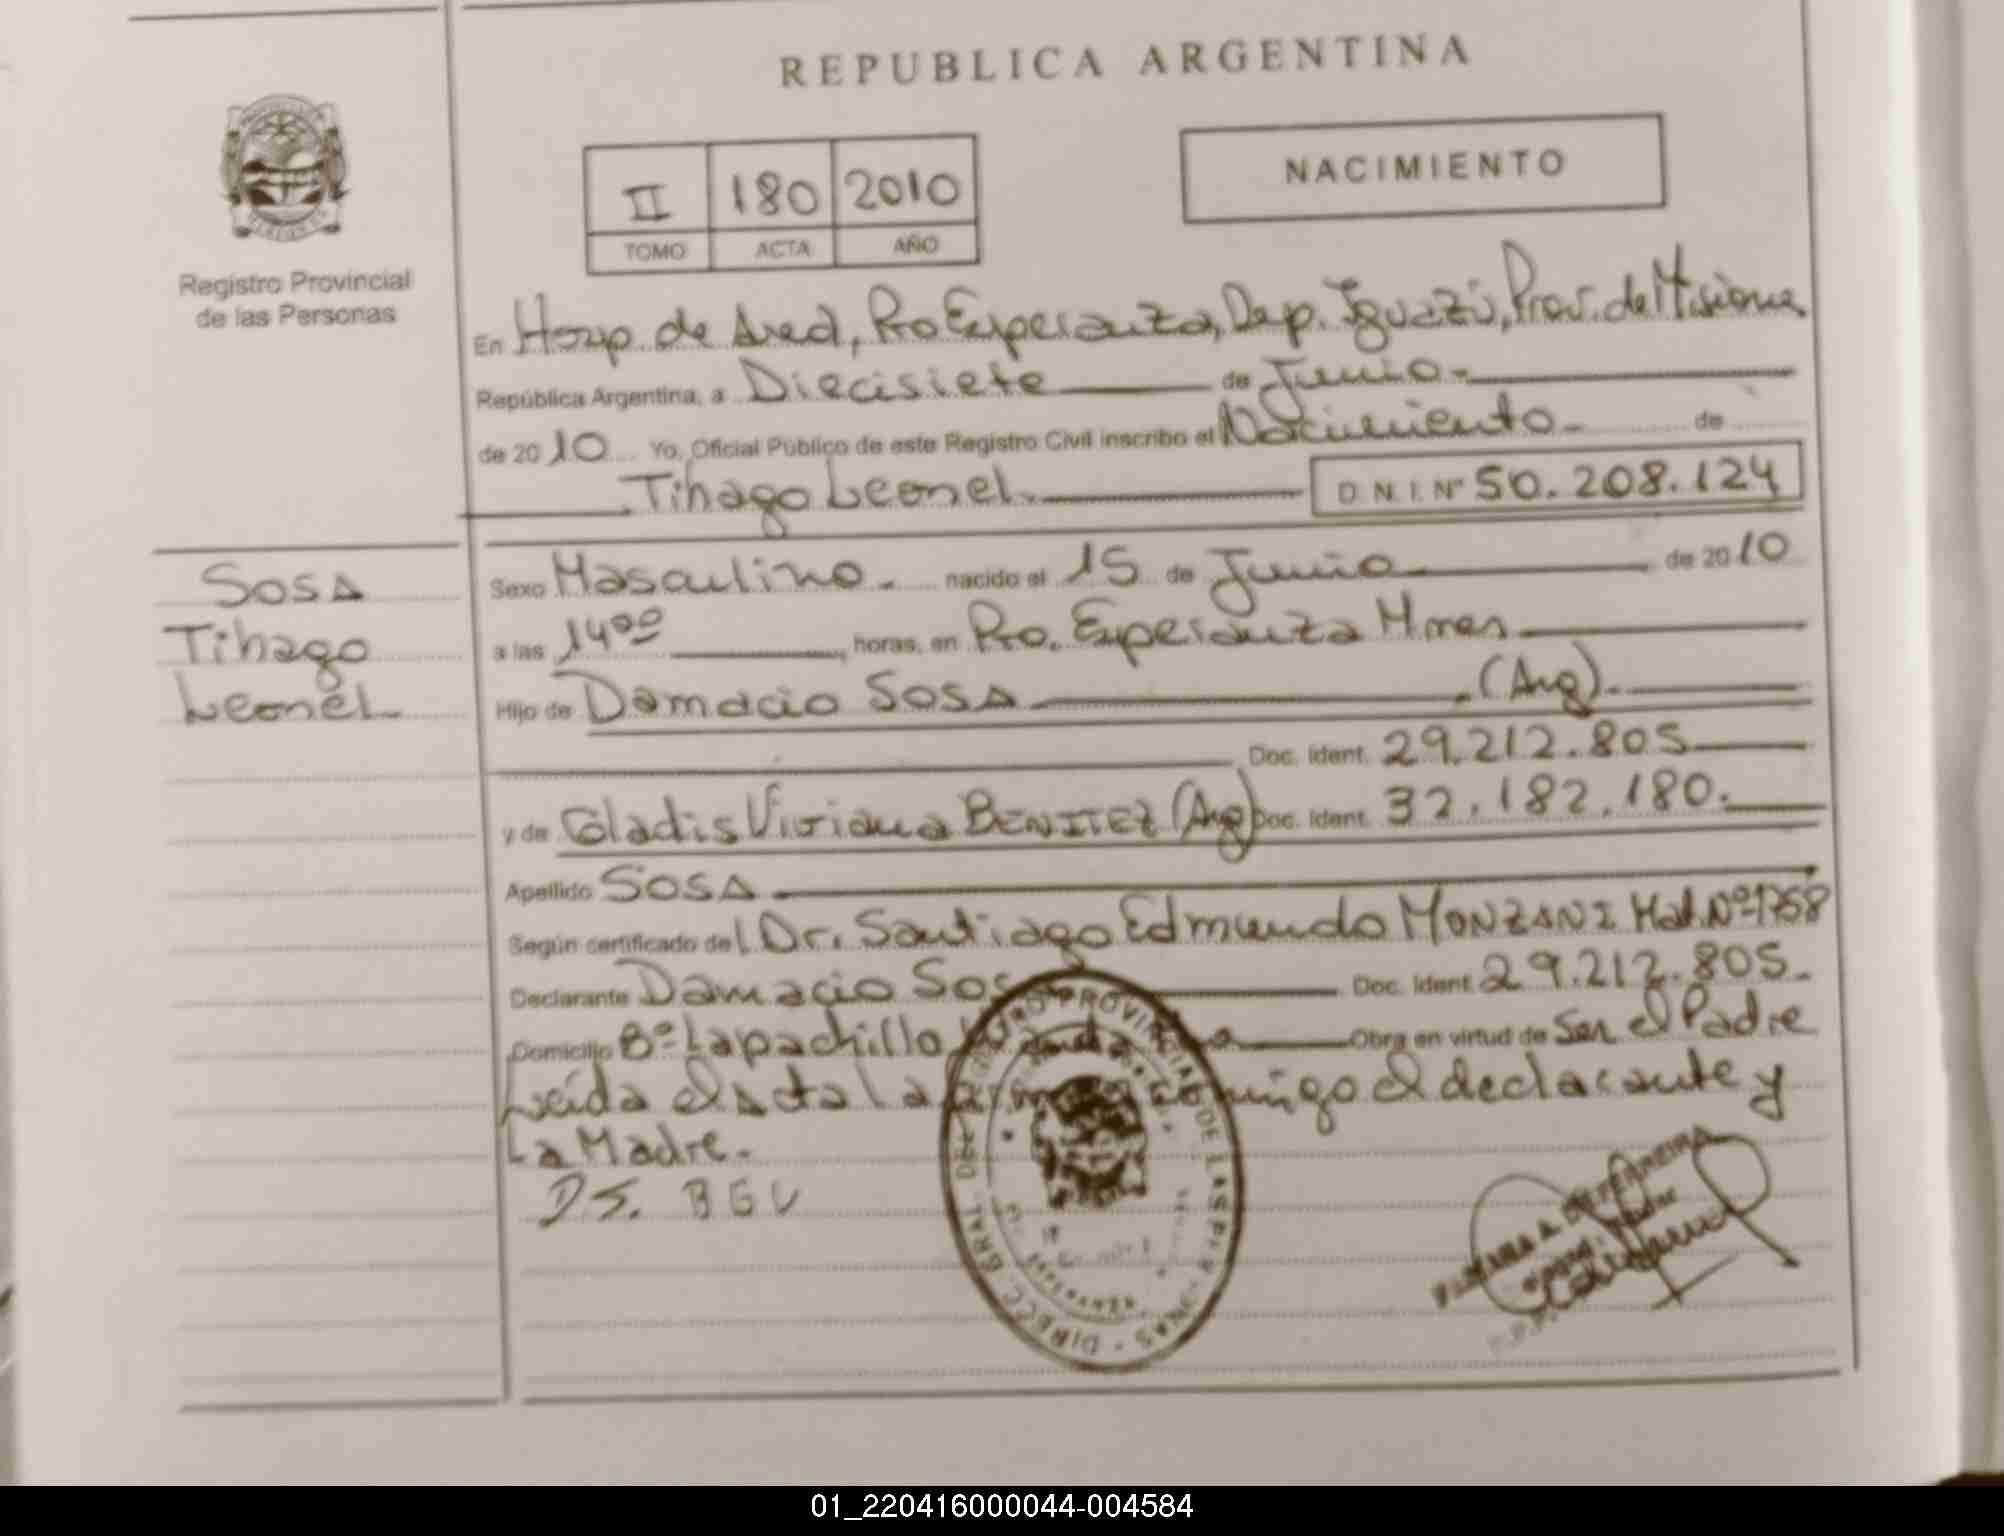 REPUBLICA ARGENTINA
NACIMIENTO
II 180 2010
TOMO ACTA AÑO
Registro Provincial
de las Personas
En Hosp de Area, Pto Esperanza, Dep. Iguazú, Prov. de Misiones
República Argentina, a Diecisiete de Junio.-
de 2010 Yo, Oficial Público de este Registro Civil inscribo el Nacimiento.- de
Tihago Leonel.
D.N.I. Nº 50.208.124
Sosa
Tihago
Leonel
Sexo Masculino.- nacido el 15 de Junio de 2010
a las 14⁰⁰, horas, en Pto. Esperanza Mnes
Hijo de Damacio Sosa .(Arg).
Doc. Ident. 29.212.805
y de Gladis Viviana BENITEZ (Arg) Doc. Ident. 32.182.180.
Apellido SOSA
Según certificado del Dr. Santiago Edmundo MONZANI Mat. Nº 1758
Declarante Damacio Sosa Doc. Ident. 29.212.805.
Domicilio Bº Lapachillo Obra en virtud de Ser el Padre
Leída el acta la conmigo el declarante y
La Madre.
DIRECC. GRAL. DEL REGISTRO PROVINCIAL DE LAS PERSONAS
01_220416000044-004584